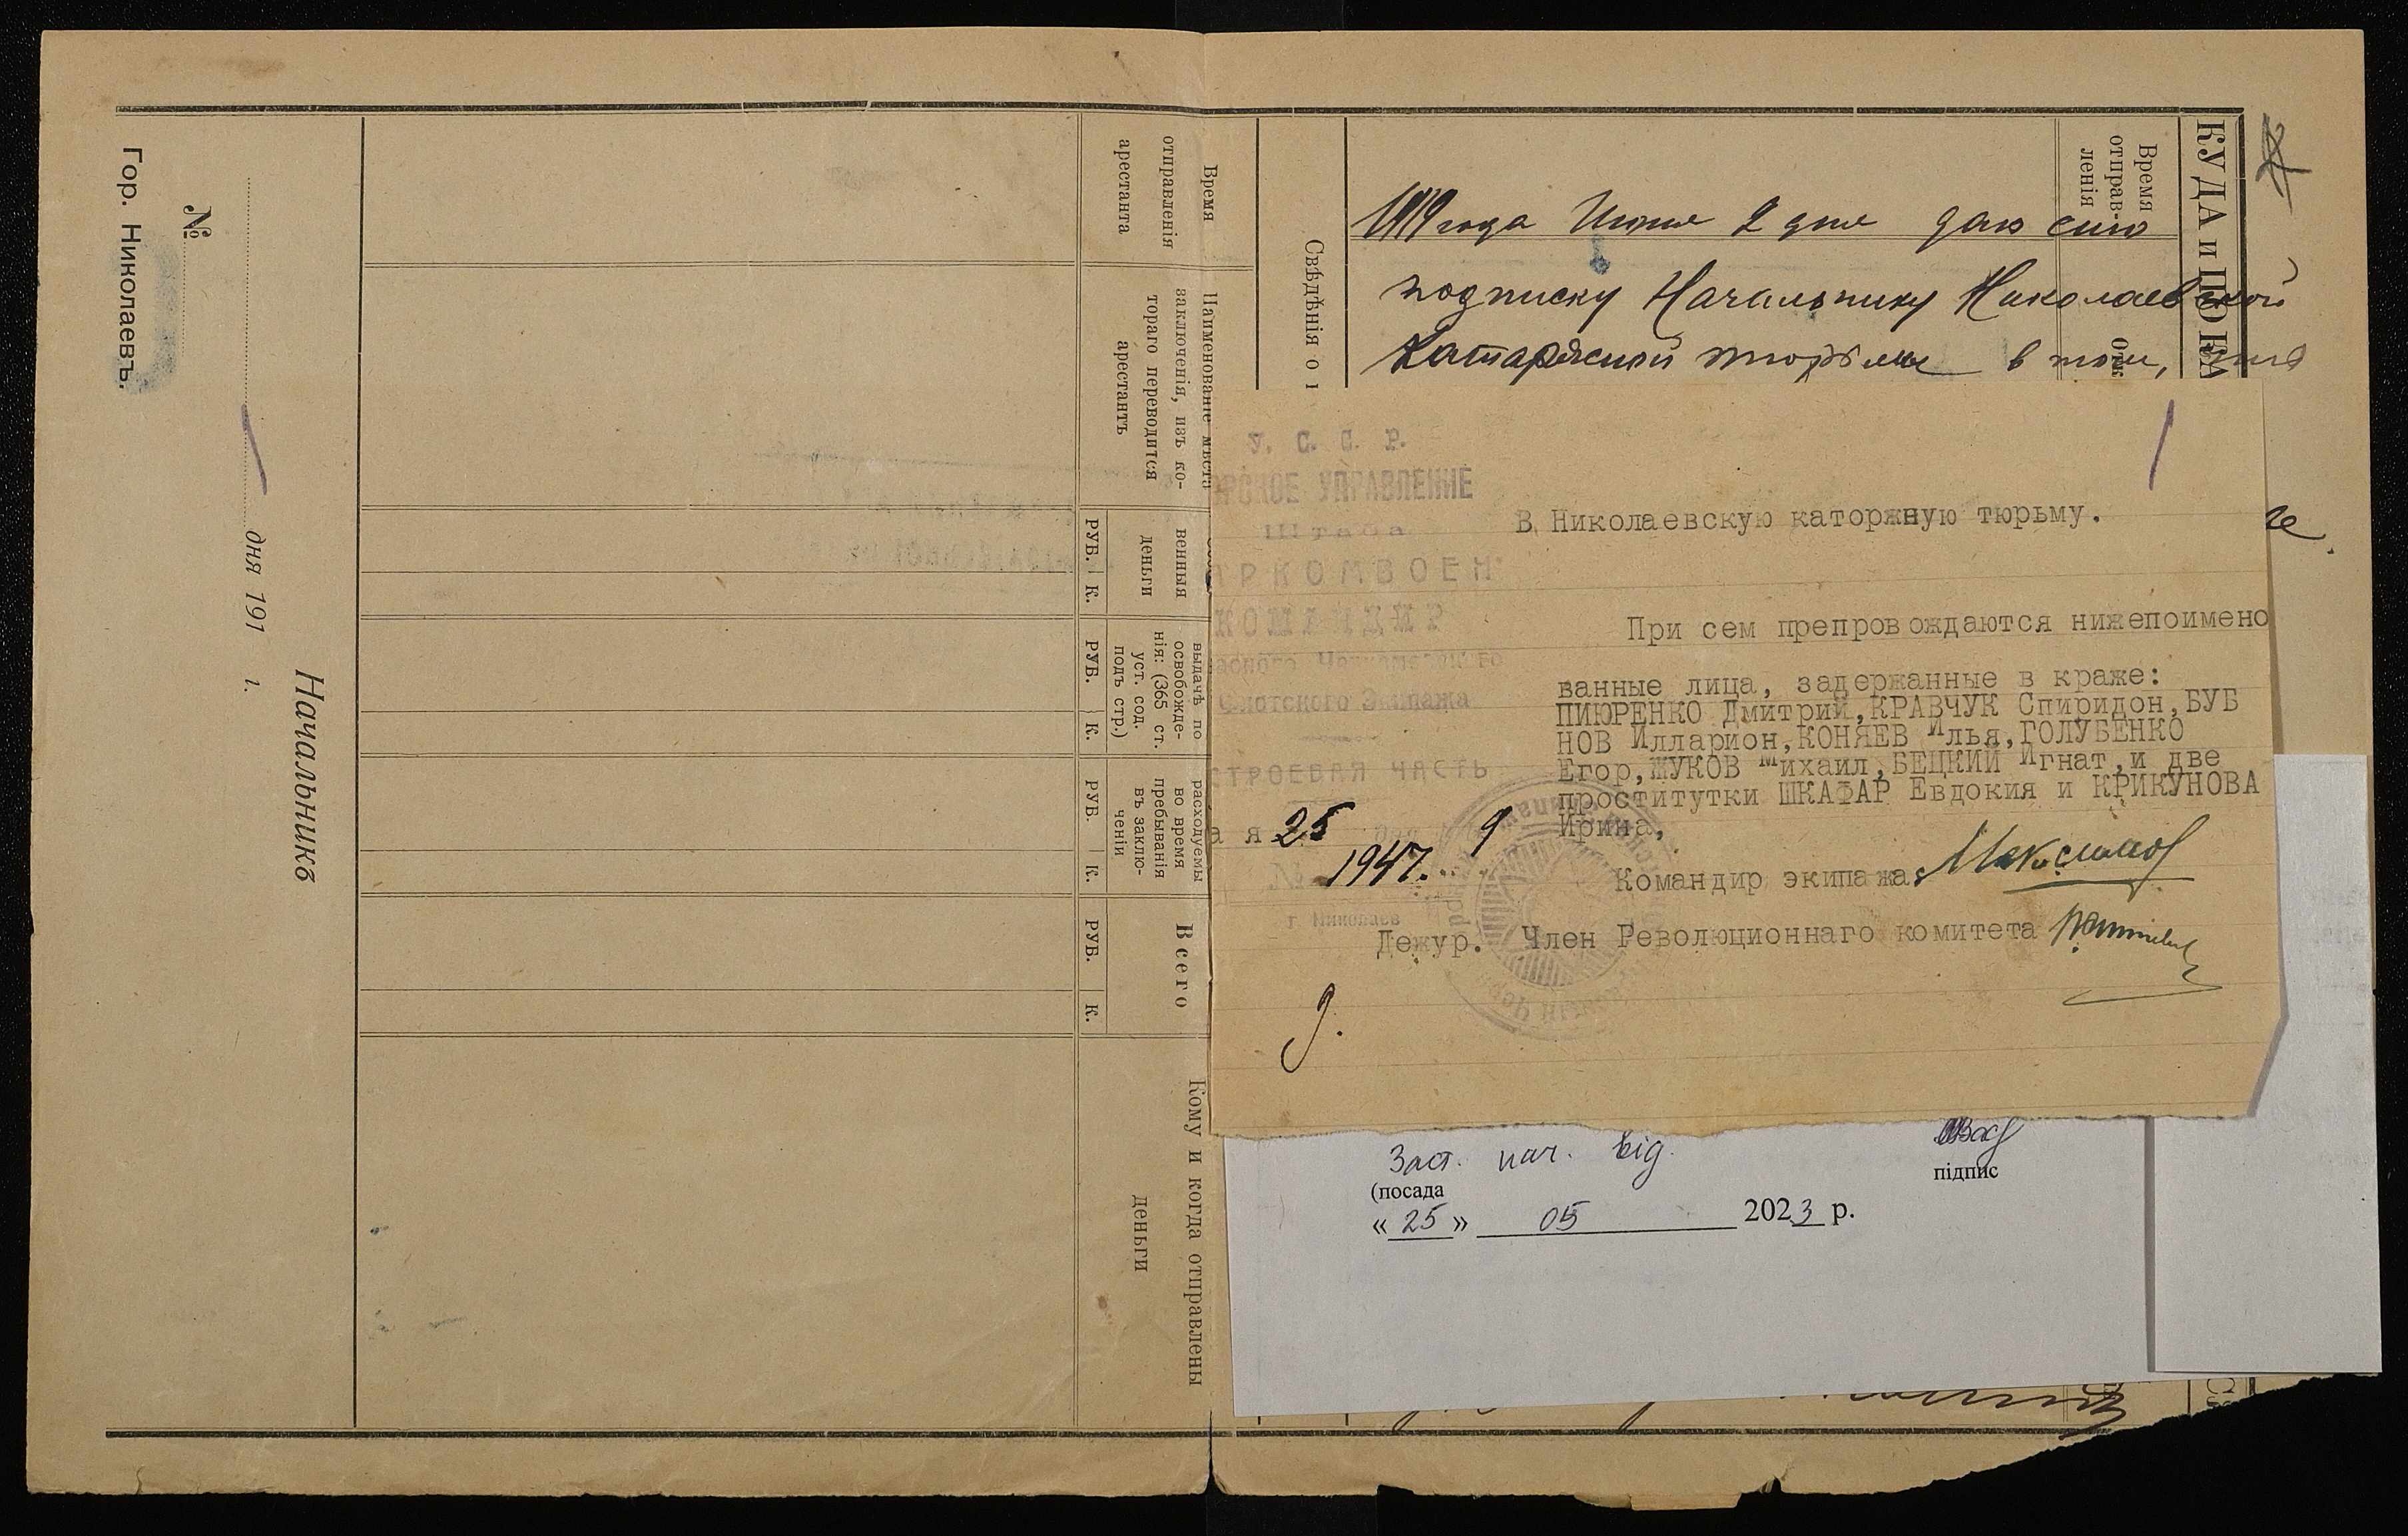 Гор. Николаевъ.
№
дня 191 г.
Начальникъ
Время
отправленія
арестанта
Наименованіе мѣста
заключенія, изъ ко-
тораго переводится
арестантъ
венныя
деньги
РУБ. К.
выдачѣ по
освобожде-
нія: (365 ст.
уст. сод.
подъ стр.)
РУБ. К.
расходуемы
во время
пребыванія
въ заклю-
ченіи
РУБ. К.
Всего
РУБ. К.
Кому и когда отправлены
деньги
Свѣдѣнія о
КУДА и
Время
отправ-
ленія
1919 года Июня 2 дня даю сию
подписку Начальнику Николаевской
Катаржной тюрьмы в том, что
У. С. С. Р.
РСКОЕ УПРАВЛЕНИЕ
Штаба
АРКОМВОЕН
КОМАНДИР
асного Черноморского
Флотского Экипажа
СТРОЕВАЯ ЧАСТЬ
а я 25 дня 9
№ 1947.
г Николаев
В Николаевскую каторжную тюрьму.
При сем препровождаются нижепоимено
ванные лица, задержанные в краже:
ПИЮРЕНКО Дмитрий,КРАВЧУК Спиридон,БУБ
НОВ Илларион,КОНЯЕВ Илья,ГОЛУБЕНКО
Егор,ЖУКОВ Михаил,БЕЦКИЙ Игнат,и две
проститутки ШКАФАР Евдокия и КРИКУНОВА
Ирина,
Командир экипажа Максимов
Дежур. Член Революционнаго комитета
9.
Заст. нач. від.
(посада
підпис
« 25 » 05 2023 р.